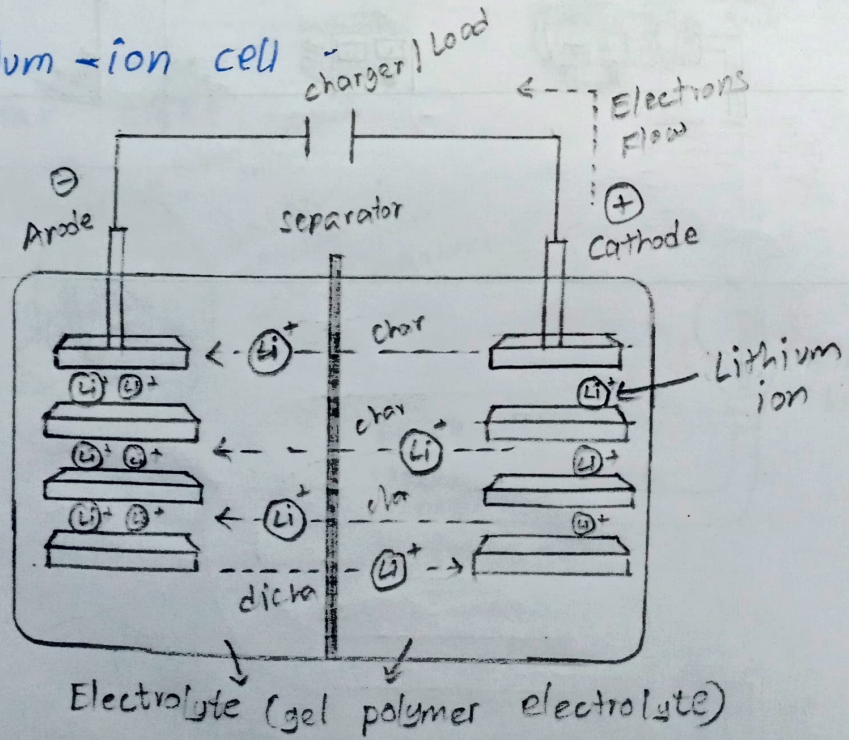 um -ion cell -
charger / Load
Electrons
Flow
⊖
Anode
separator
⊕
Cathode
Li+
char
Lithium
ion
Li+ Li+
Li+
char
Li+
Li+ Li+
Li+
Li+
char
Li+ Li+
Li+
Li+
dicha
Electrolyte (gel polymer electrolyte)